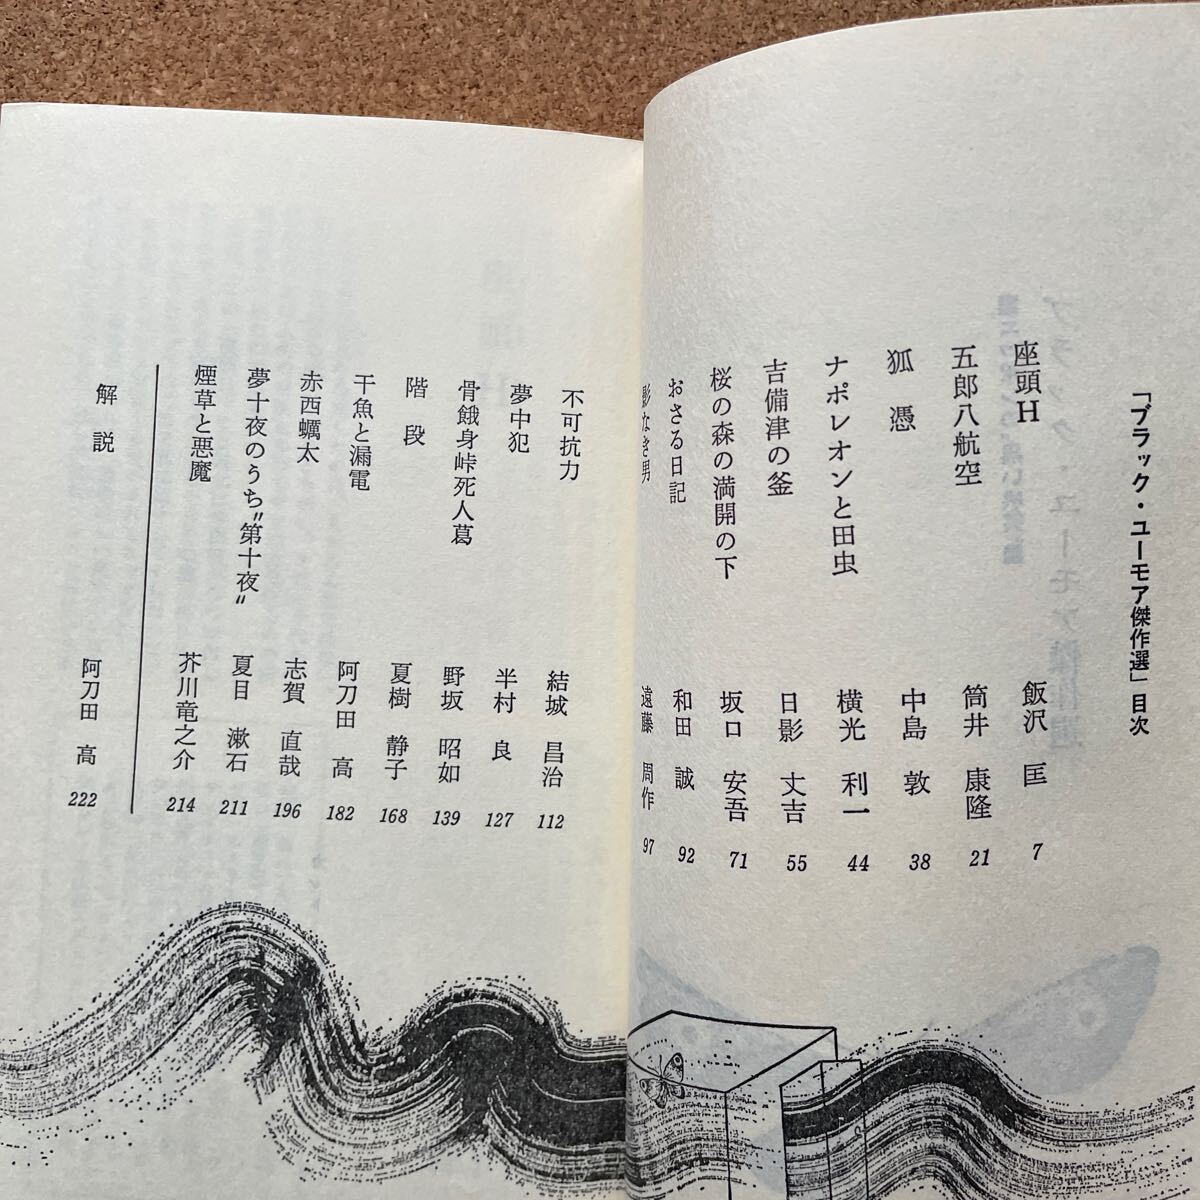 「ブラック・ユーモア傑作選」目次
座頭H 飯沢 匡 7
五郎八航空 筒井 康隆 21
狐憑 中島 敦 38
ナポレオンと田虫 横光 利一 44
吉備津の釜 日影 丈吉 55
桜の森の満開の下 坂口 安吾 71
おさる日記 和田 誠 92
影なき男 遠藤 周作 97
不可抗力 結城 昌治 112
夢中犯 半村 良 127
骨餓身峠死人葛 野坂 昭如 139
階段 夏樹 静子 168
干魚と漏電 阿刀田 高 182
赤西蠣太 志賀 直哉 196
夢十夜のうち〝第十夜〟 夏目 漱石 211
煙草と悪魔 芥川竜之介 214
解説 阿刀田 高 222